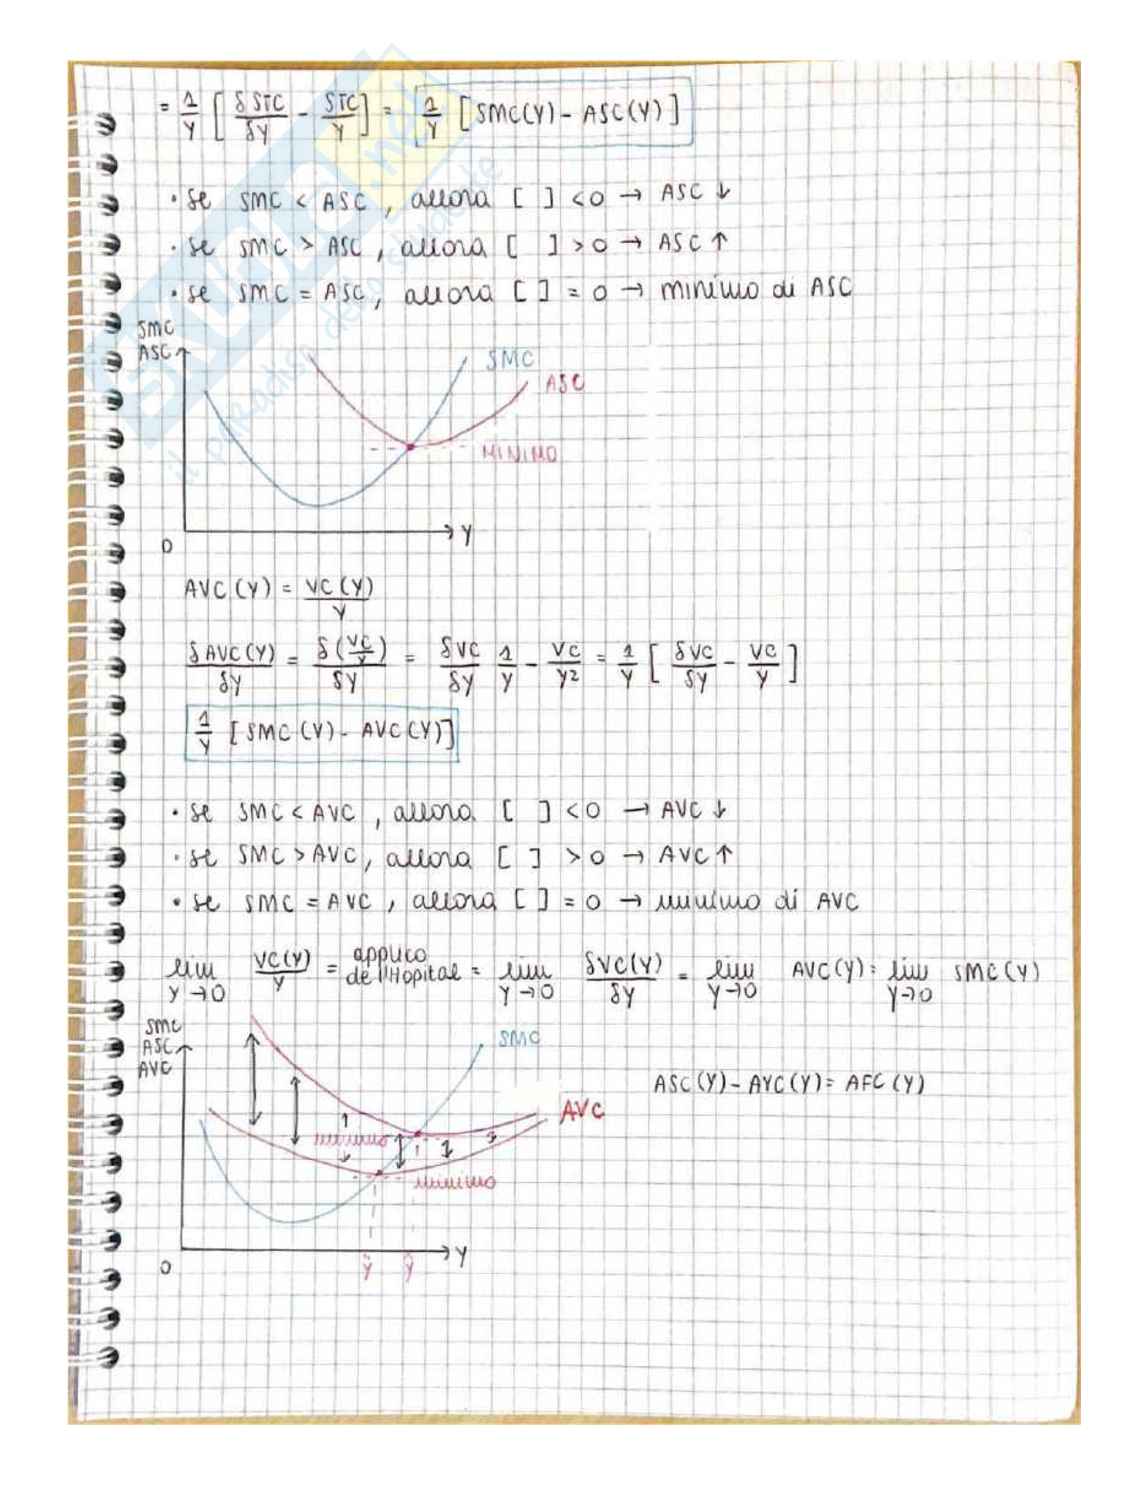 = 1/Y [ δSTC/δY - STC/Y ] = 1/Y [SMC(Y) - ASC(Y)]
• se SMC < ASC, allora [ ] <0 → ASC ↓
• se SMC > ASC, allora [ ] >0 → ASC ↑
• se SMC = ASC, allora [ ] = 0 → minimo di ASC
SMC
ASC
SMC
ASC
MINIMO
Y
0
AVC(Y) = VC(Y)/Y
δAVC(Y)/δY = δ(VC/Y)/δY = δVC/δY 1/Y - VC/Y2 = 1/Y [ δVC/δY - VC/Y ]
1/Y [SMC(Y) - AVC(Y)]
• se SMC < AVC, allora [ ] <0 → AVC ↓
• se SMC > AVC, allora [ ] >0 → AVC ↑
• se SMC = AVC, allora [ ] = 0 → minimo di AVC
lim Y→0 VC(Y)/Y = applico de l'Hopital = lim Y→0 δVC(Y)/δY = lim Y→0 AVC(Y) = lim Y→0 SMC(Y)
SMC
ASC
AVC
SMC
ASC(Y) - AVC(Y) = AFC(Y)
AVC
minimo
minimo
Y
0
SKUOLA.net
il paradiso dello studente